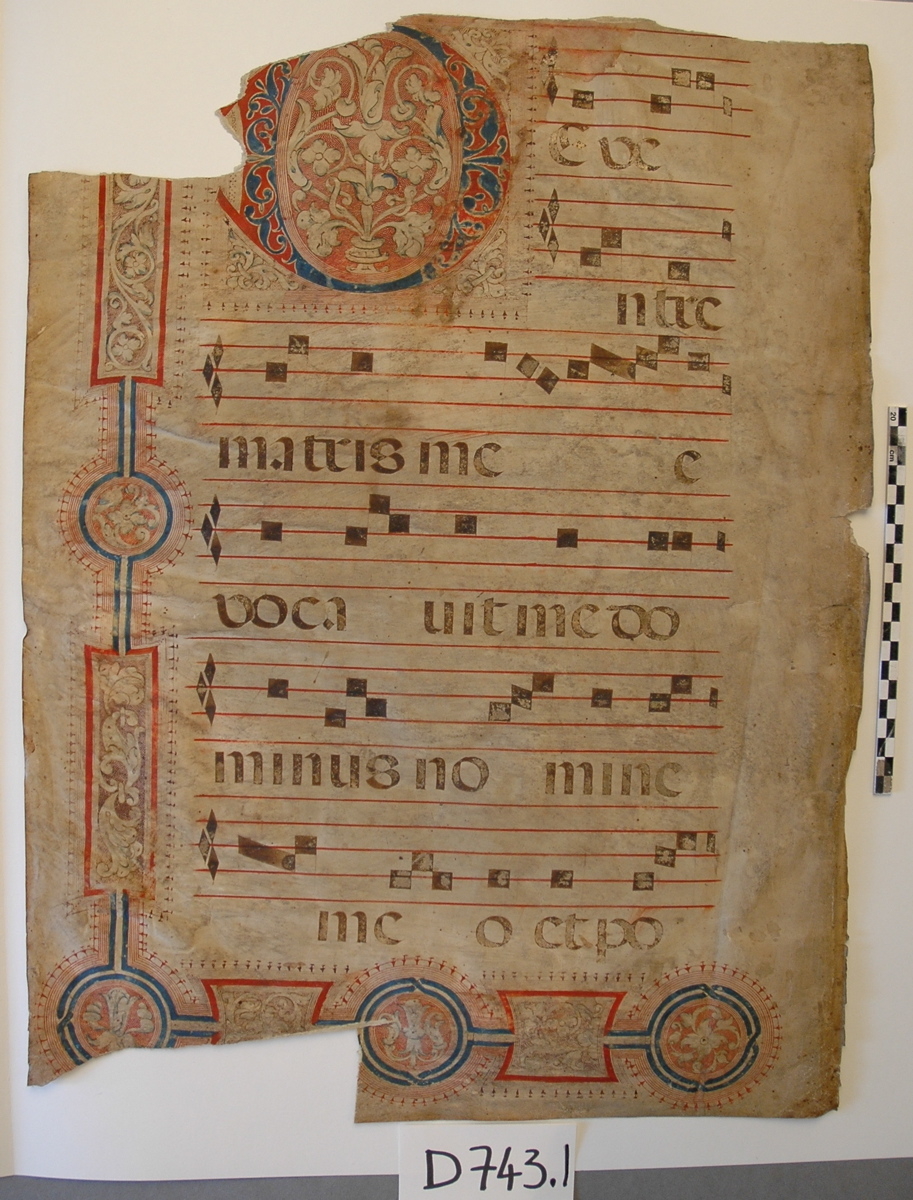 DE ve
ntre
matris me e
voca uit me do
minus no mine
me o et po
20 cm
D743.1